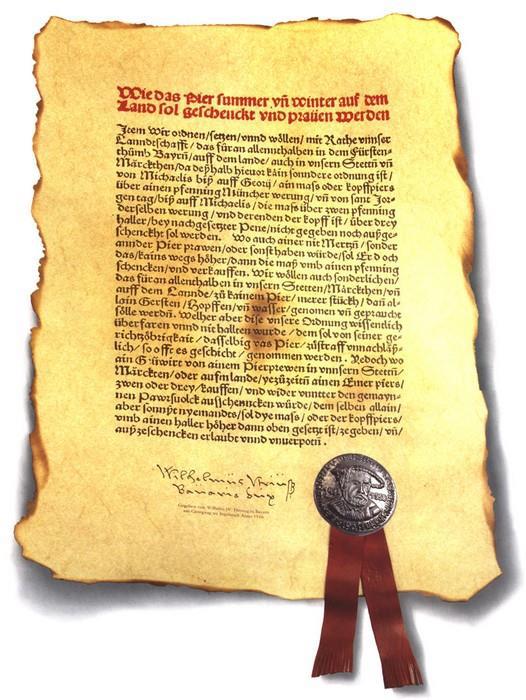 Wie das Pier summer vñ winter auf dem
Land sol geschenckt vnd praüen werden
Item Wir ordnen/setzen/vnnd wöllen/mit Rathe vnnser
Lanndtschafft/das füran allennthalben in dem Fürsten-
thümb Bayrñ/auff dem lande/auch in vnsern Stettñ vñ
Märckthen/da deßhalb hieuor kain sonndere ordnung ist/
von Michaelis biß auff Georij/ain mass oder kopffpiers
über ainen pfenning Müncher werung/vñ von sant Jor-
gen tag/biß auff Michaelis/die mass über zwen pfenning
derselben werung/vnd derenden der kopff ist/über drey
haller/bey nachgesetzter Pene/nicht gegeben noch außge-
schenckht sol werden. Wo auch ainer nit Mertzñ/sonder
annder Pier prawen/oder sonst haben würde/sol Er doch
das/kains wegs höher/dann die maß vmb ainen pfenning
schencken/vnd verkauffen. Wir wöllen auch sonderlichen/
das füran allenthalben in vnsern Stetten/Märckthen/vñ
auff dem Lannde/zü kainem Pier/merer stückh/dañ al-
lain Gersten/Hopffen/vñ wasser/genomen vñ gepraucht
sölle werdñ. Welher aber dise vnsere Ordnung wissenlich
überfaren vnnd nit hallten wurde/dem sol von seiner ge-
richtzöbrigkait/dasselbig vas Pier/züstraff vnnachläß-
lich/so offt es geschicht/genommen werden. Yedoch wo
ain Güwirt von ainem Pierprewen in vnnsern Stettñ/
Märckten/oder aufm lande/yezüzeitñ ainen Emer piers/
zwen oder drey/kauffen/vnd wider vnntter den gemayn-
nen Pawrsuolck ausschenncken würde/dem selben allain/
aber sonnst nyemandts/sol dye mass/oder der kopffpiers/
vmb ainen haller höher dann oben gesetzt ist/zegeben/vñ/
außzeschencken erlaubt vnnd vnuerpotñ.
Wilhelmüs
Bavaris Dux
Gegeben von Wilhelm IV. Herzog in Bayern
am Georgitag zu Ingolstadt Anno 1516